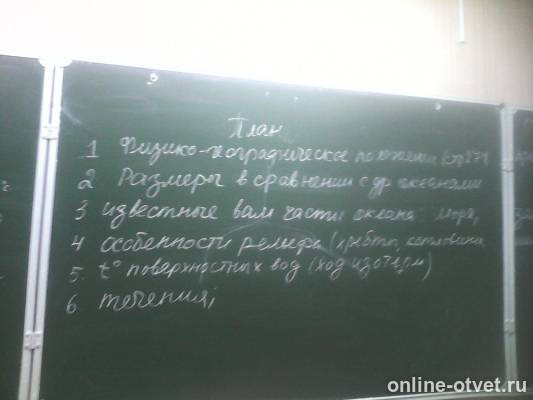 План
1 Физико-географическое положение (стр 271
2 Размеры в сравнении с др океанами
3 известные вам части океана: моря,
4 особенности рельефа (хребты, котловины
5. t° поверхностных вод (ход изотерм)
6 течения;
online-otvet.ru